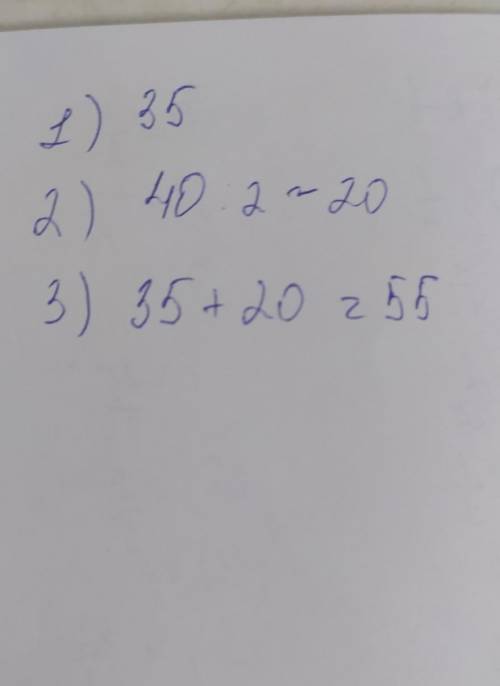 1) 35
2) 40 : 2 = 20
3) 35 + 20 = 55